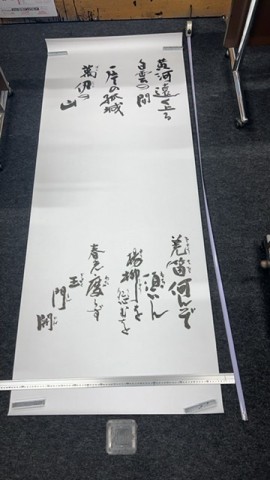 黄河遠く上る
白雲の間
一片の孤城
萬仞の山
羌笛何んぞ
須いん
楊柳を怨むを
春光度らず
玉門関